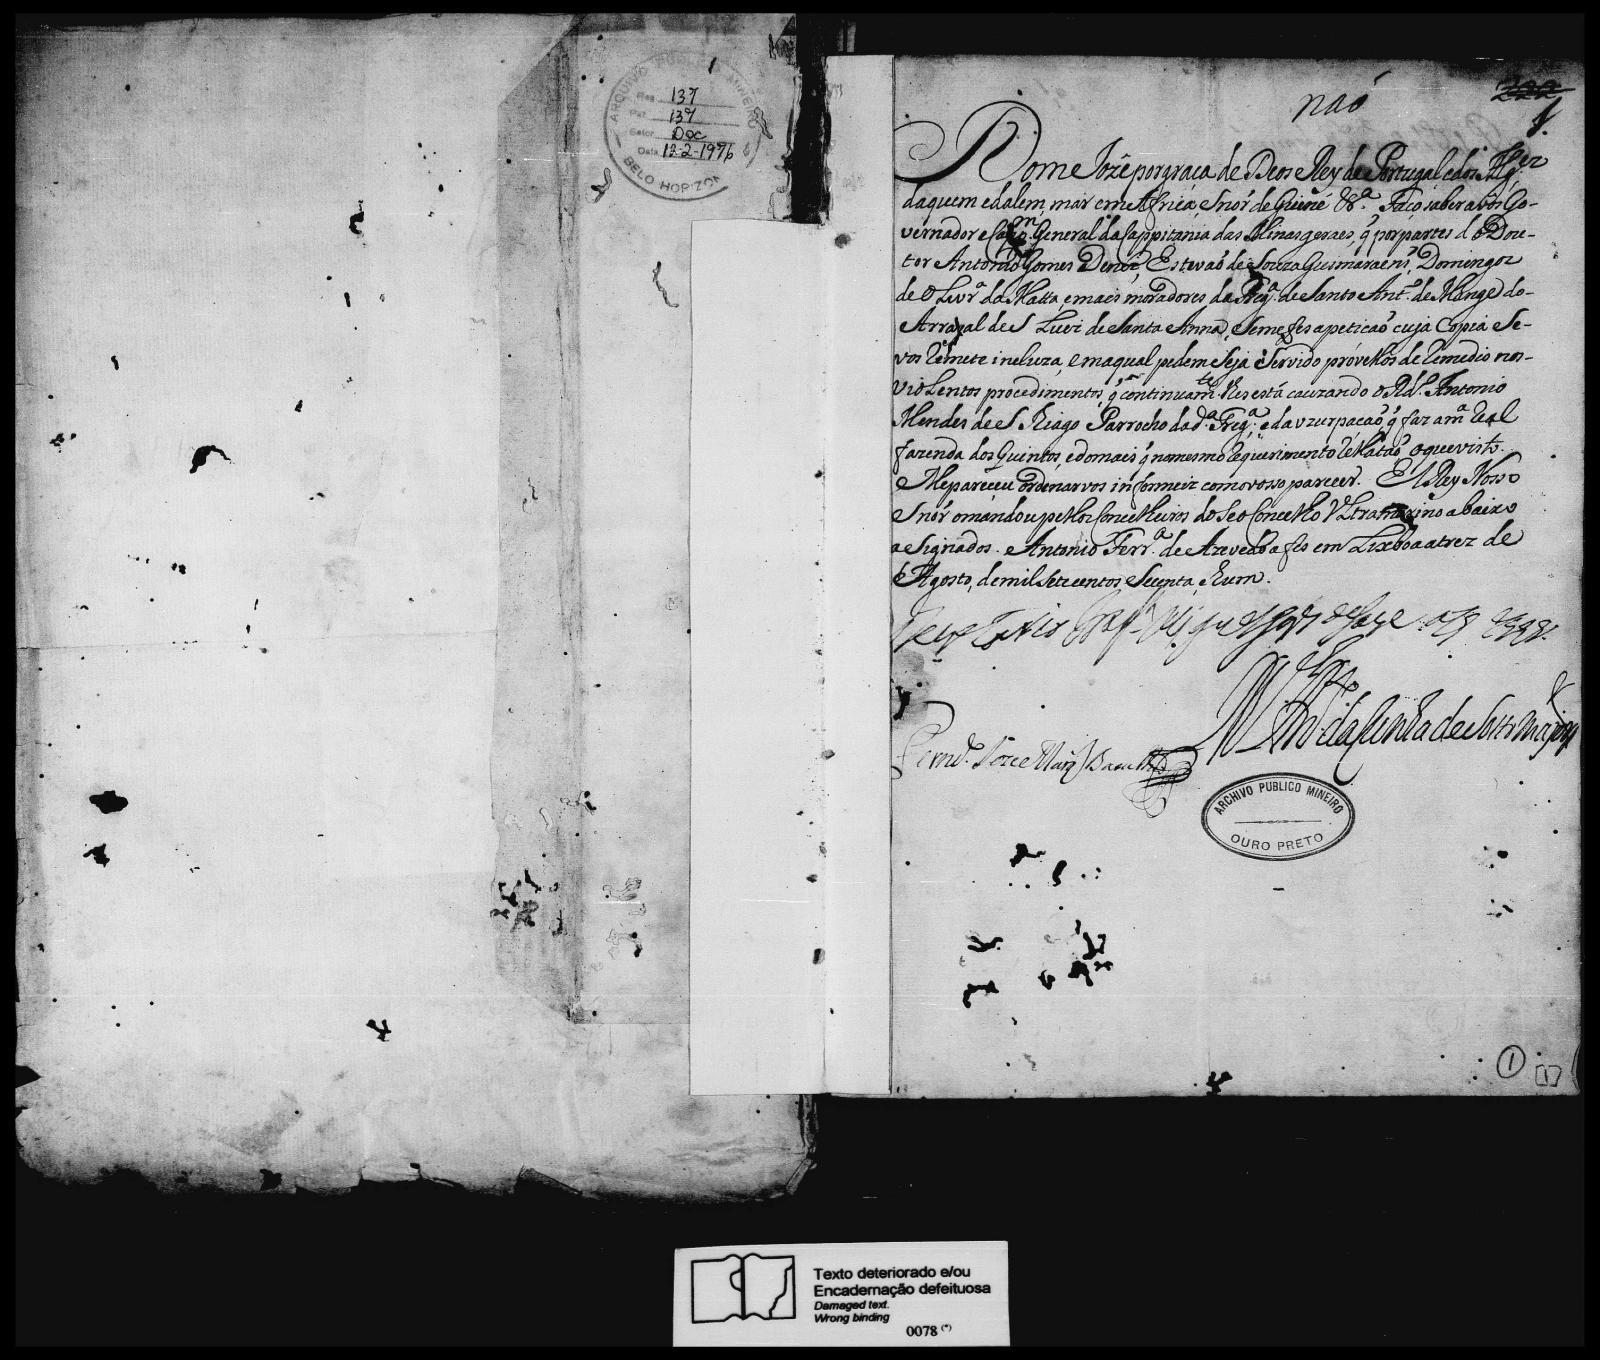 ARQUIVO PUBLICO MINEIRO
Res. 137
137
Setor Doc
Data 12-2-1976
BELO HORIZON
naó
222
1.
Dom Jozé por graça de Deos Rey de Portugal e dos Alg.es
daquem e dalem, mar em Africa, Snór de Guiné &.ª Faço saber a vós Go-
vernador e Cap.m General da Cappitania das Minas geraes, q̃ por partes d o Dou-
tor Antonio Gomes Estevaó de Souza Guimaraens, Domingos
de Olivr.ª da Matta, e mais moradores da Freg.ª de Santo Ant.º de do
Arrayal de S Luis de Santa Anna, Se me fes a petiçaó cuja Copia Se
vos Remete incluza, e na qual pedem Seja Servido próvellos de Remedio nos
violentos procedimentos, q̃ continuam.te lhes está cauzando o Rd.º Antonio
Mendes de S Tiago Parrocho da d.ª Freg.ª, e da uzurpaçaó q̃ faz a m.ª Real
fazenda dos Quintos, e do mais q̃ no mesmo Requerimento Relataó, o que visto.
Me pareceu ordenarvos informeiz com o vosso parecer. El Rey Nosso
Snór o mandou pellos Concelheiros do Seo Concelho Ultramarino abaixo
aSignados. Antonio Ferr.ª de Azevedo a fes em Lixboa a trez de
Agosto, de mil Setecentos, Secenta, e hum.
Miguel
Ant.º da Cunha de Sotto Mayor
Fern.do Joze Marq Bacelhar
ARCHIVO PUBLICO MINEIRO
OURO PRETO
1
[1]
Texto deteriorado e/ou
Encadernação defeituosa
Damaged text.
Wrong binding
0078 (*)